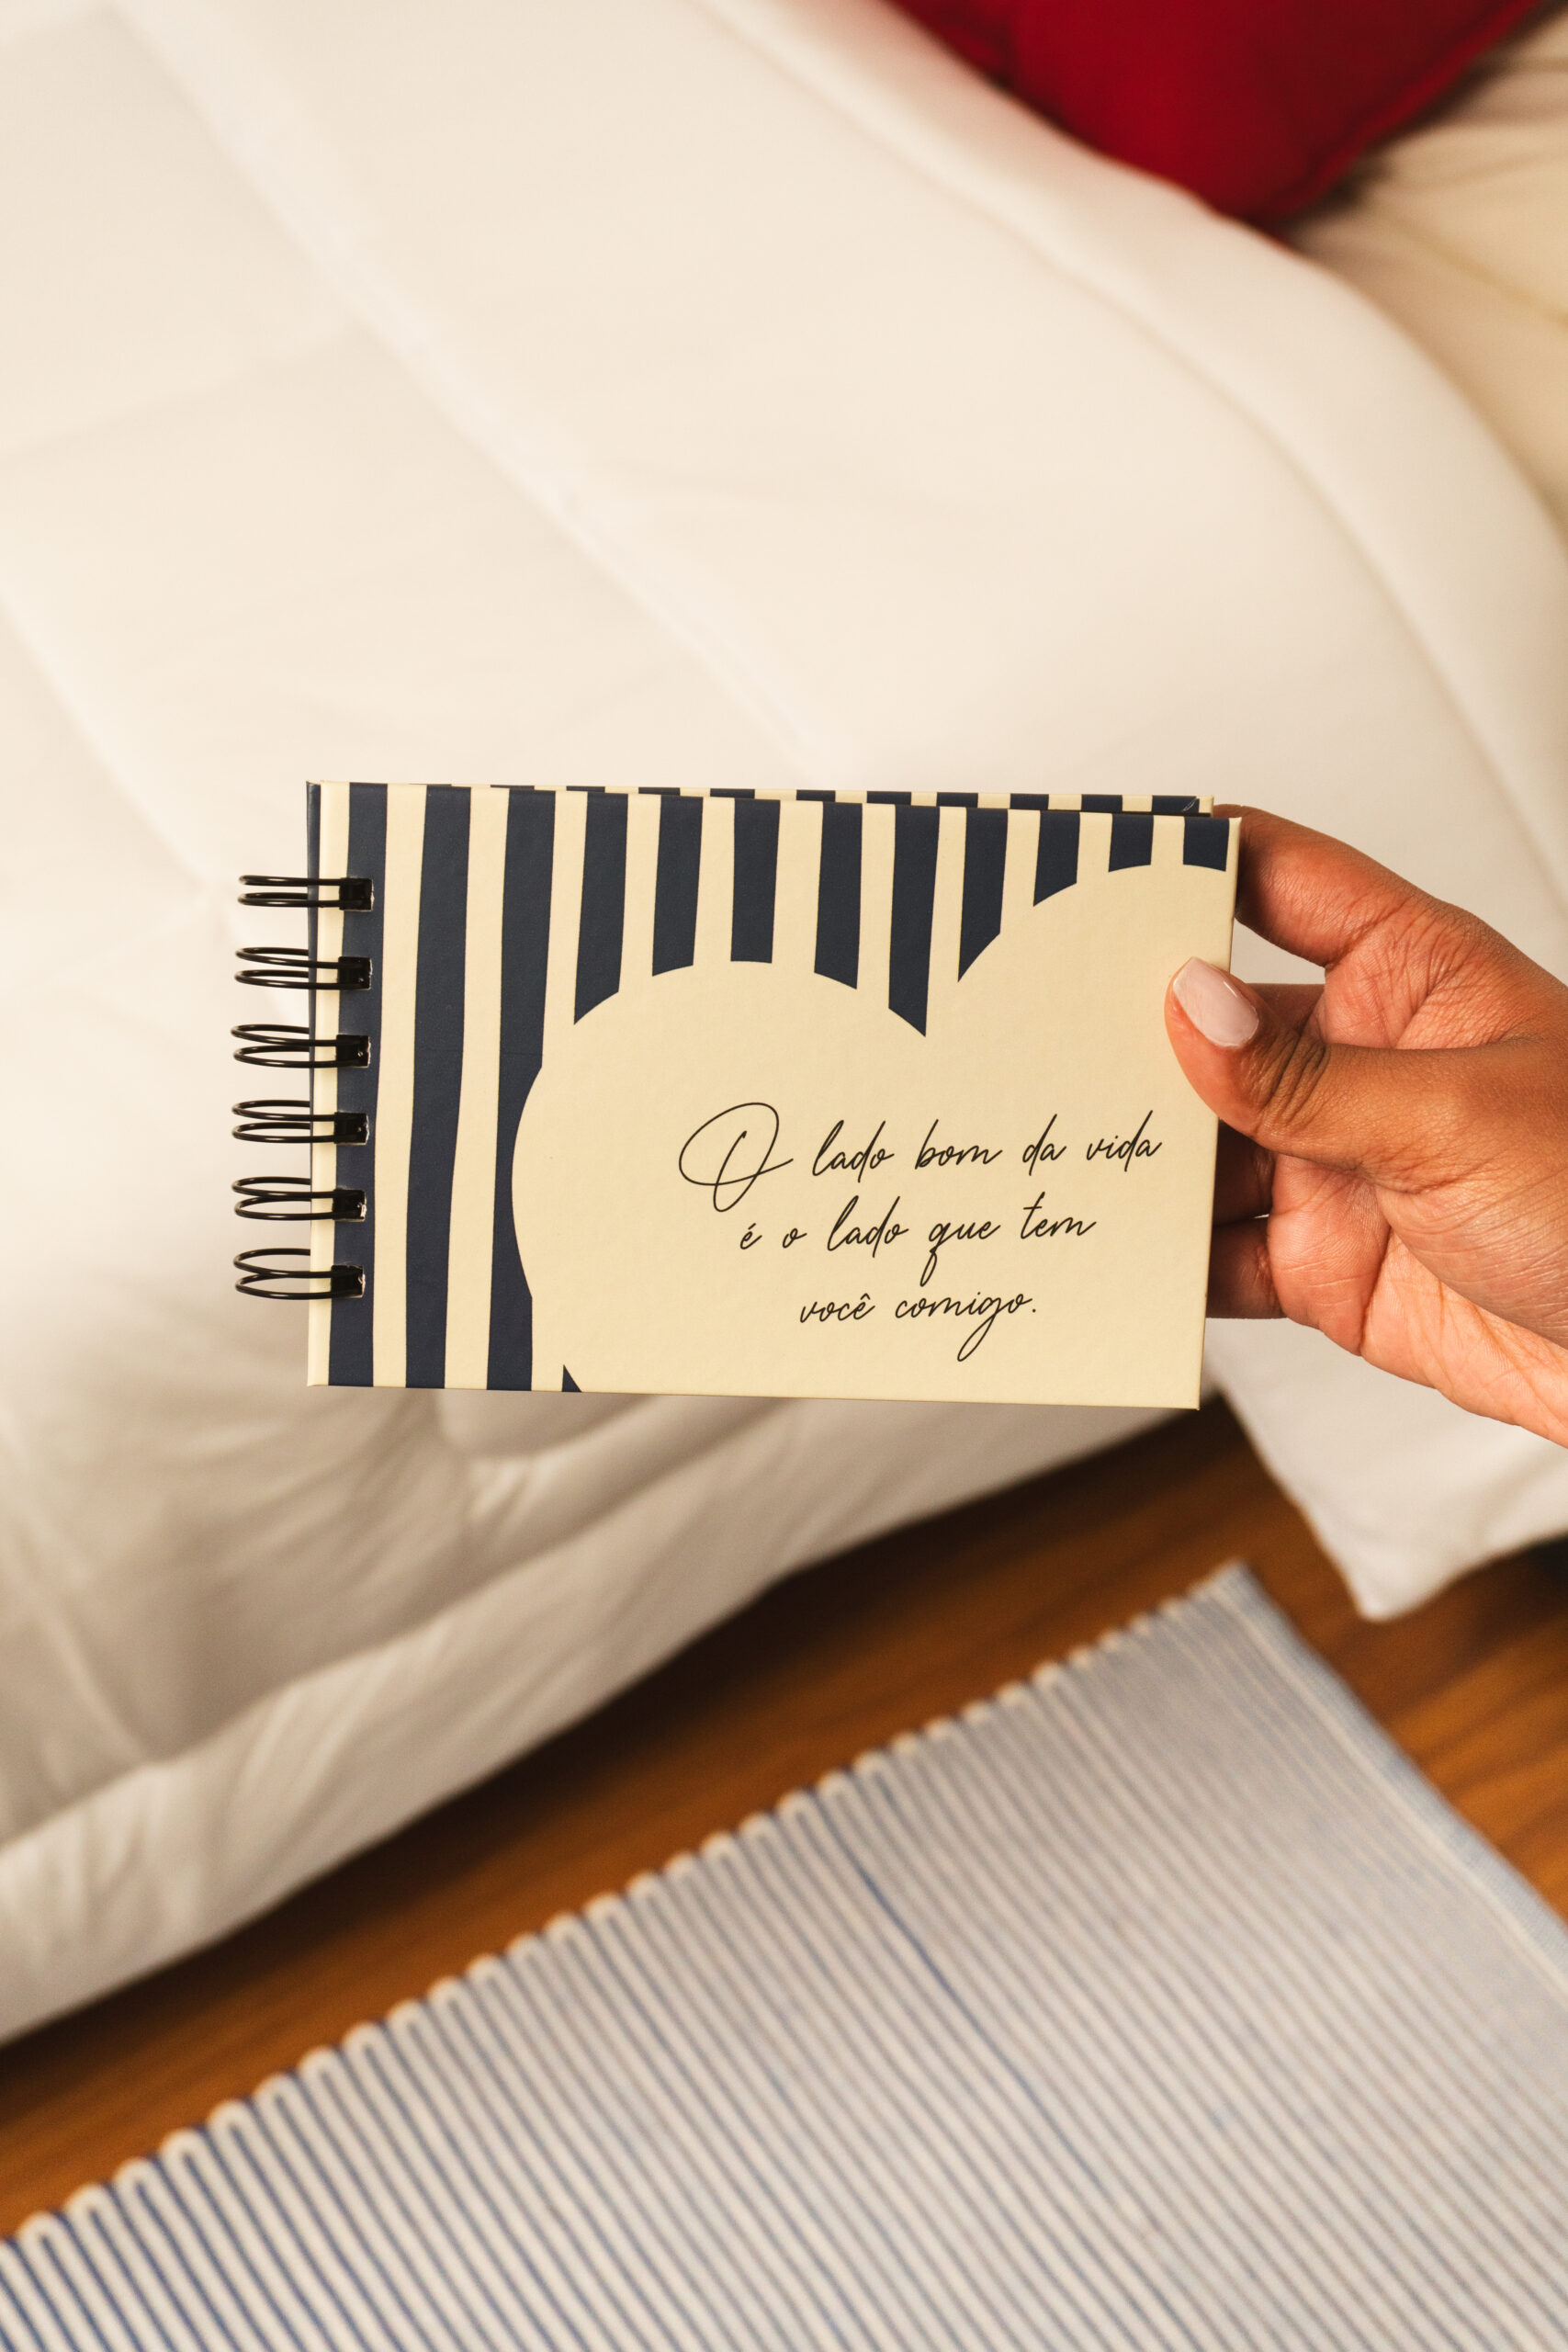 O lado bom da vida
é o lado que tem
você comigo.